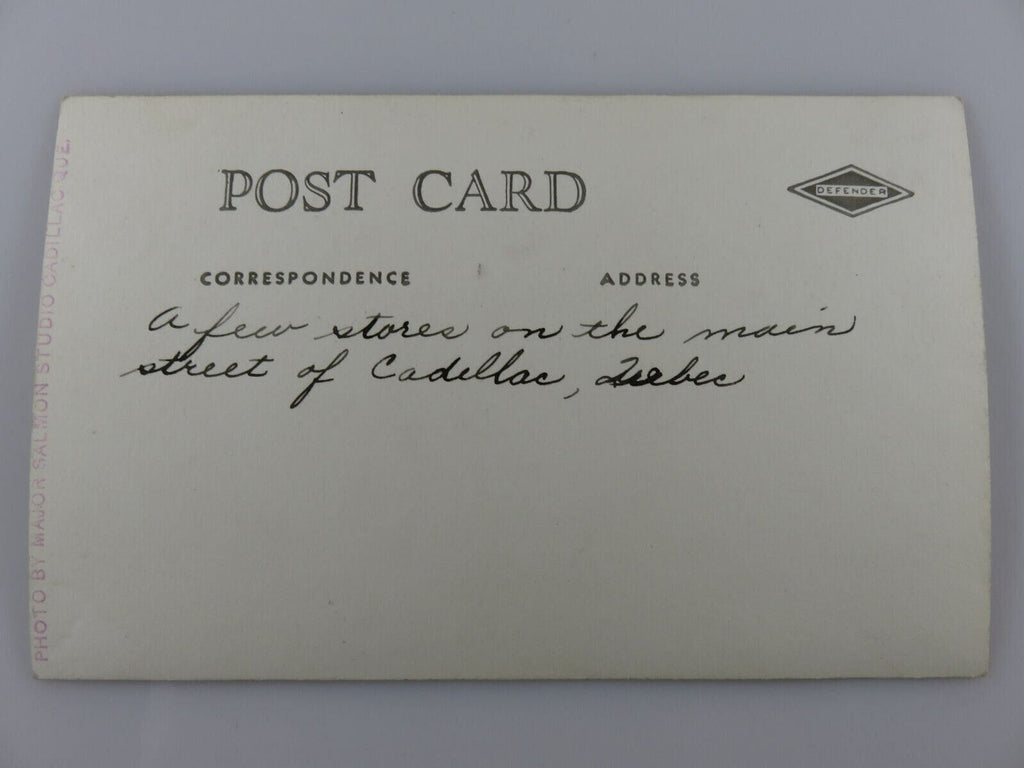 POST CARD
DEFENDER
CORRESPONDENCE
ADDRESS
A few stores on the main
street of Cadillac, Quebec
PHOTO BY MAJOR SALMON STUDIO CADILLAC QUE.